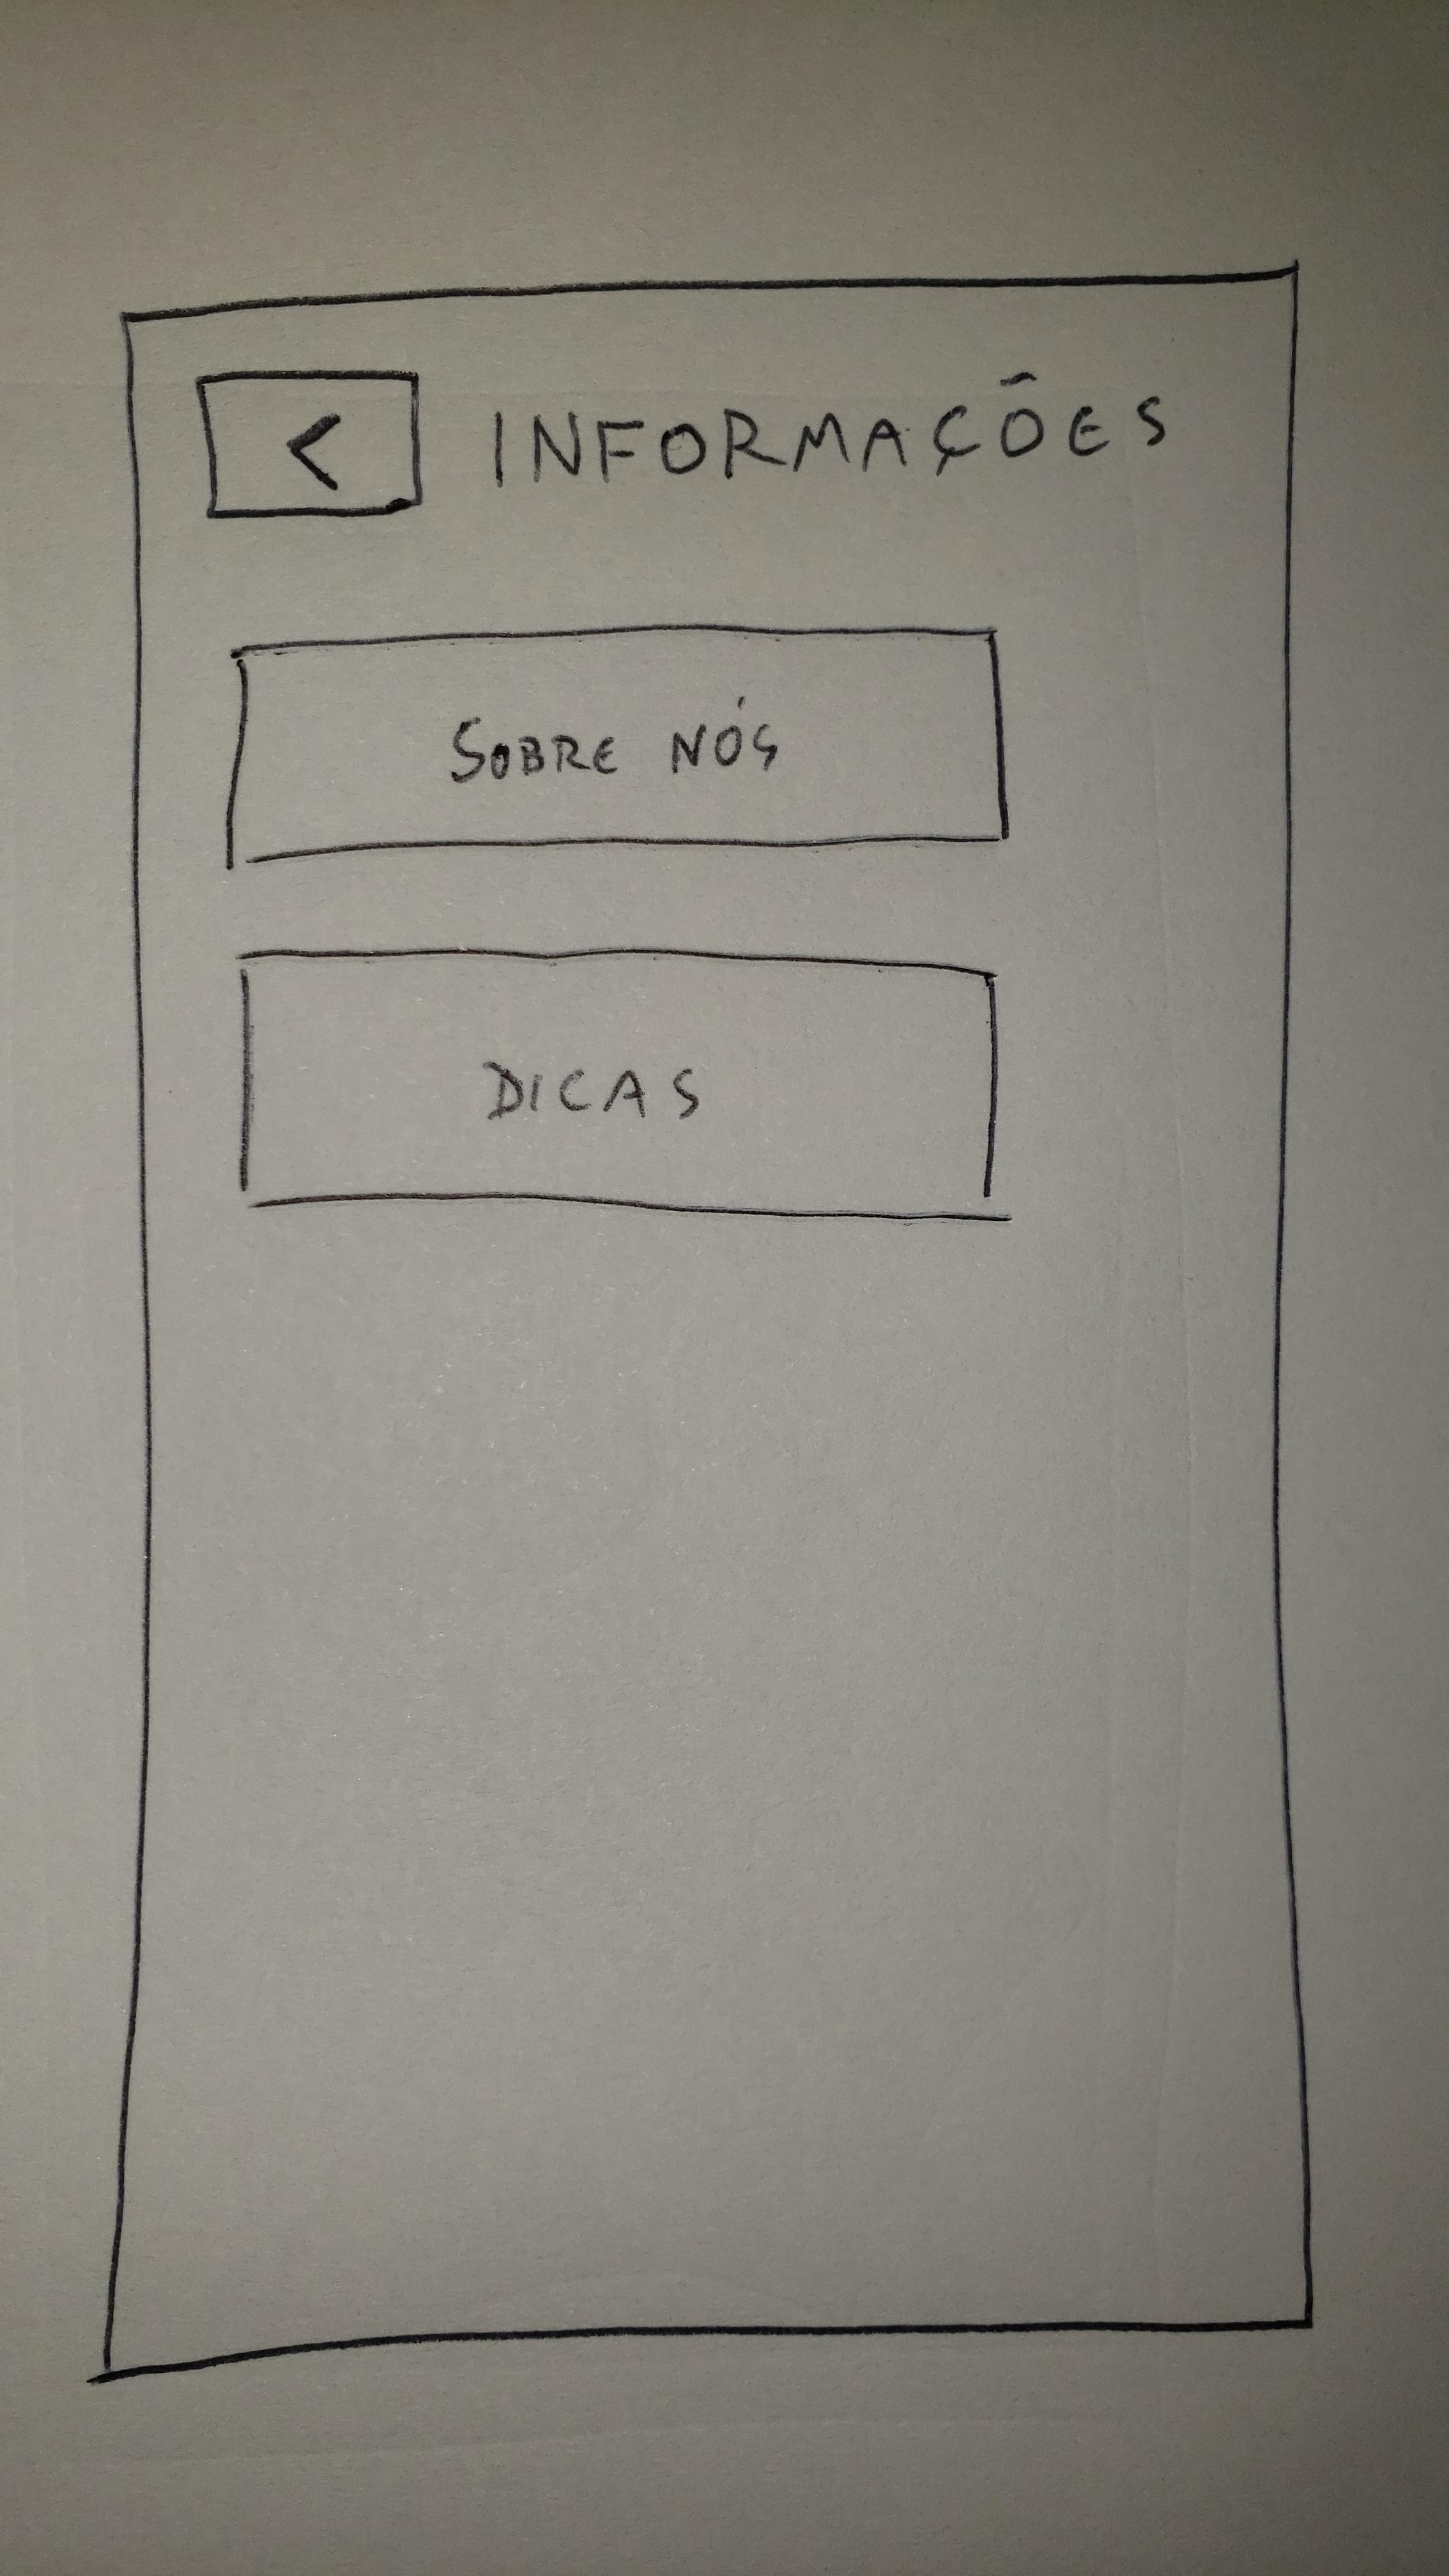 < INFORMAÇÕES
SOBRE NÓS
DICAS